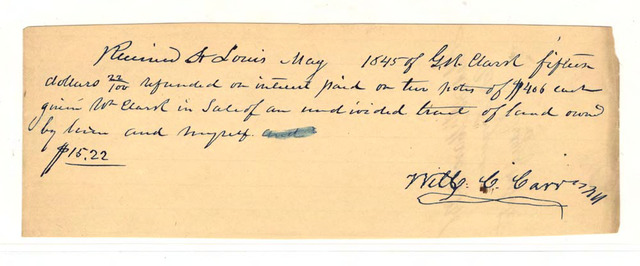 Received St Louis May 1845 of G.R. Clark fifteen
dollars 22/100 refunded on interest paid on two notes of $406 each
given Wm Clark in Sale of an undivided tract of land owned
by him and myself.
$15.22
Will. C. Carr